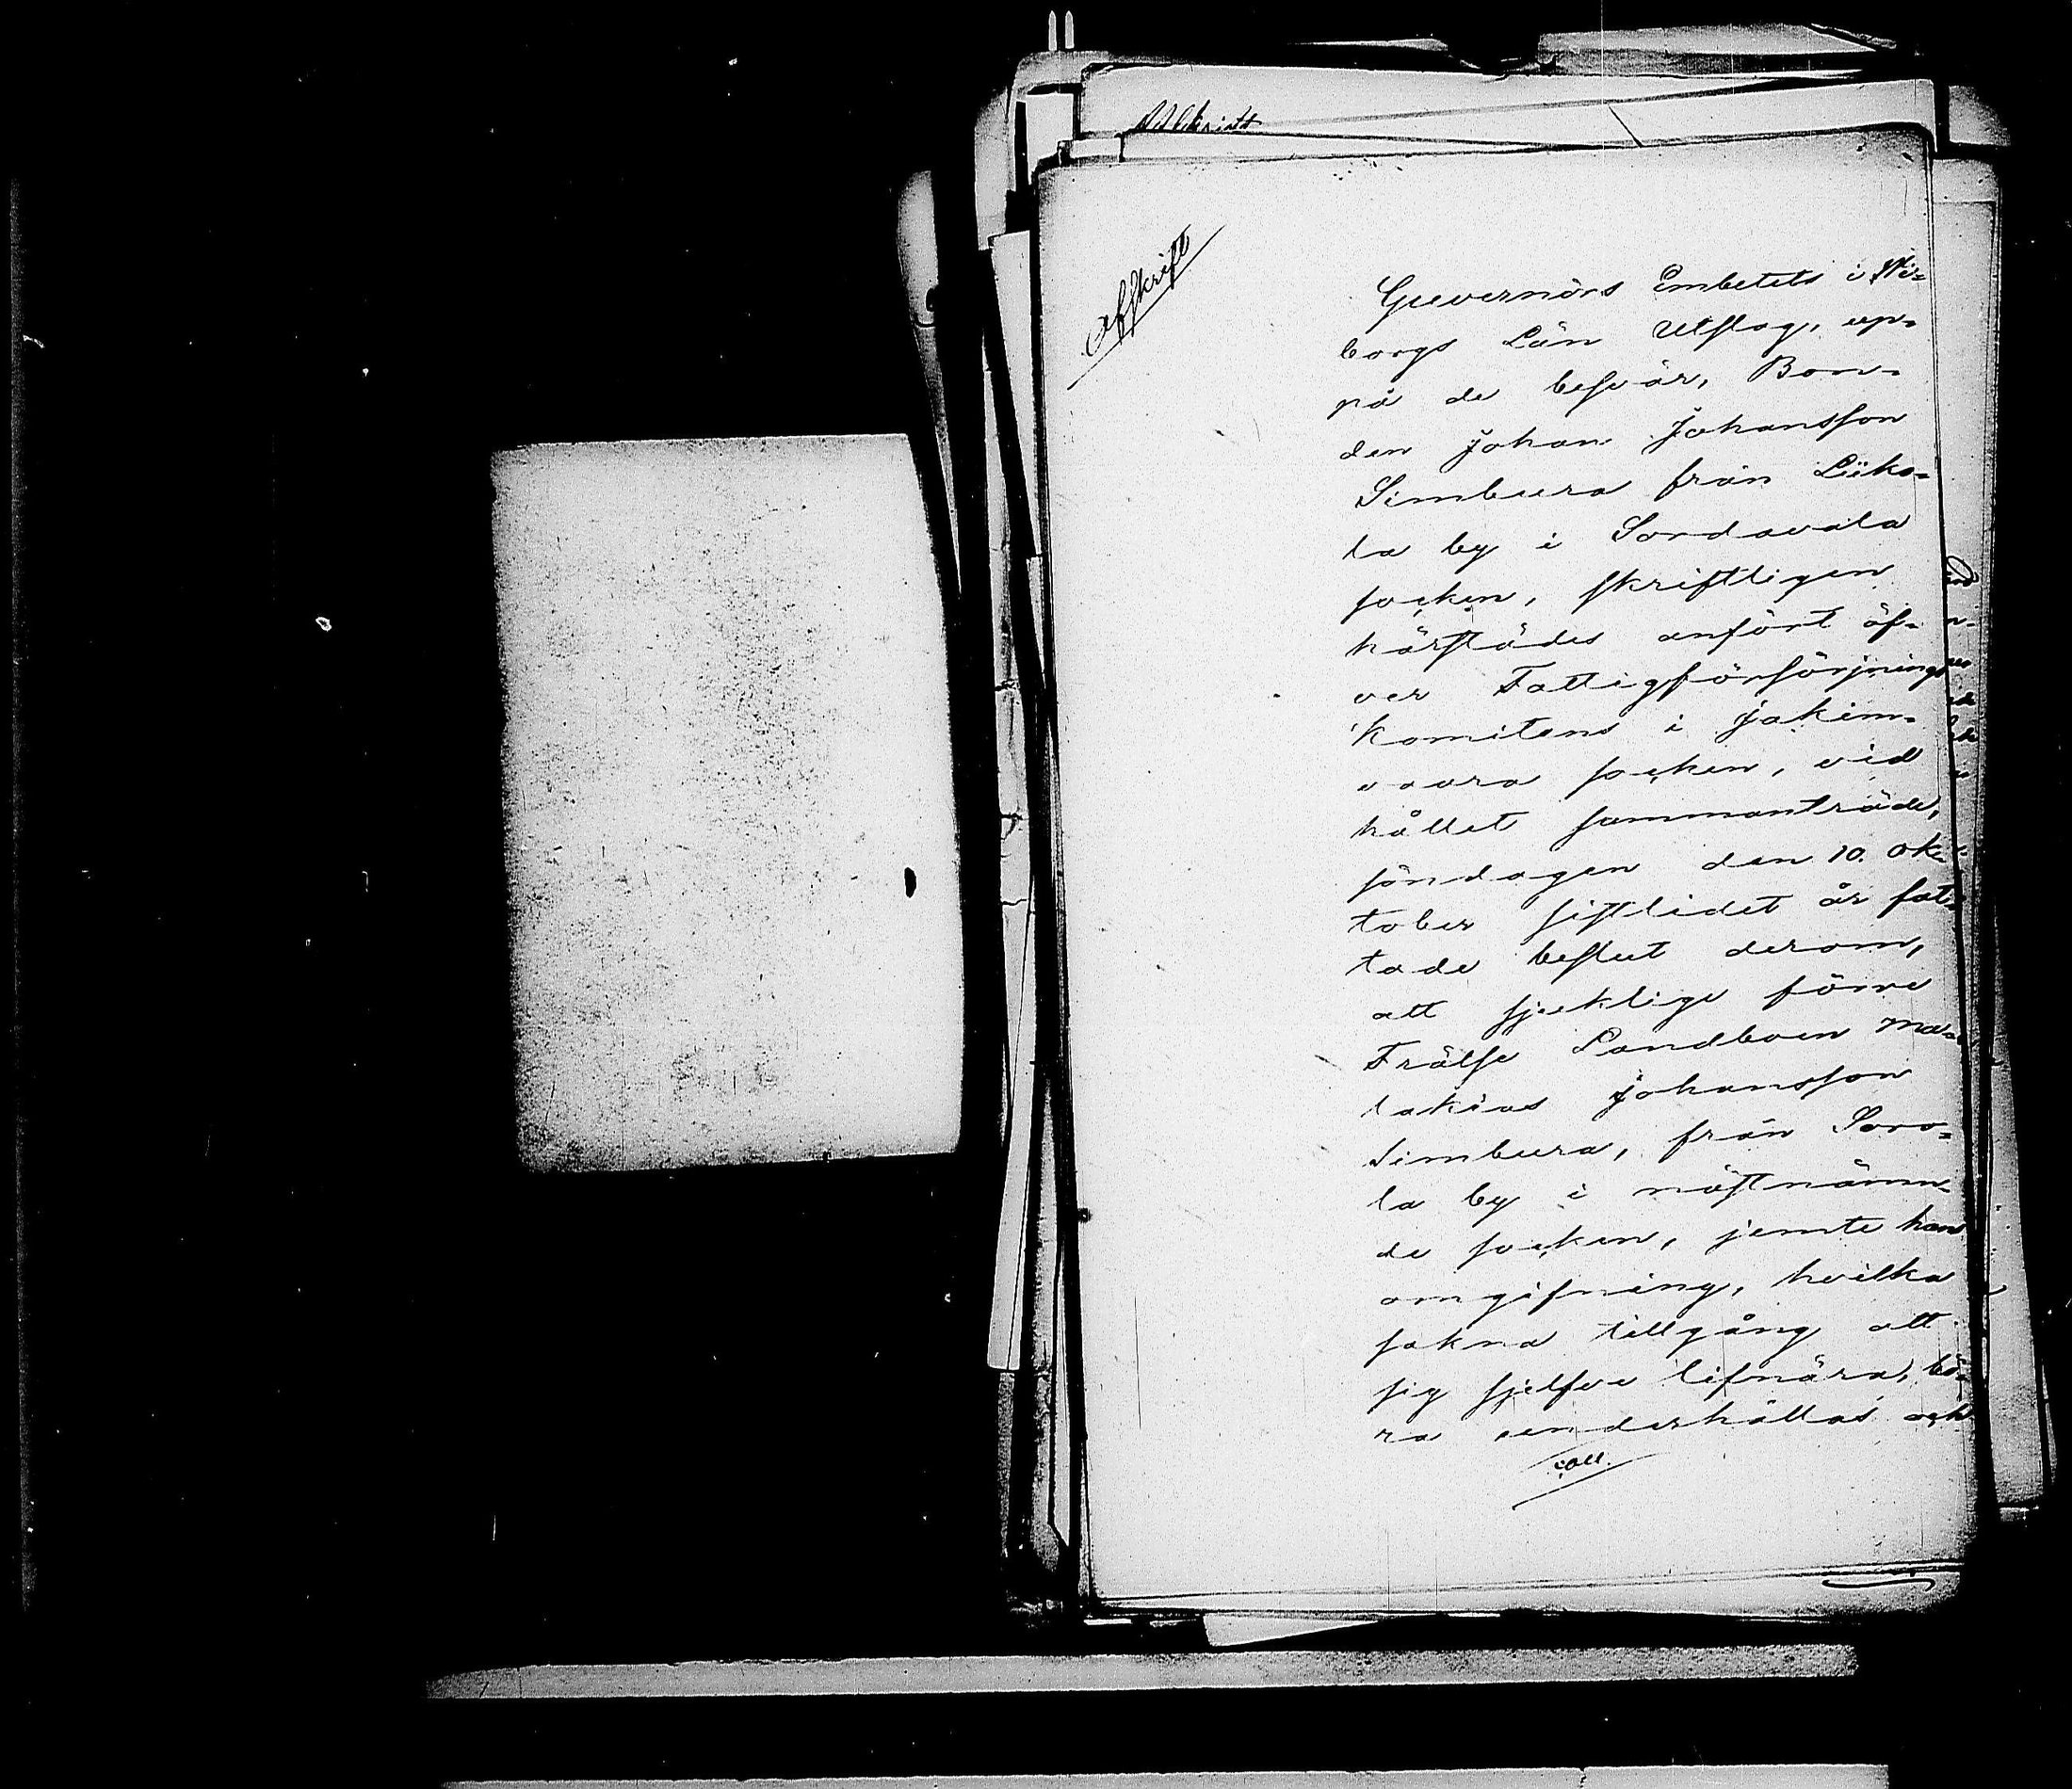 Afskrift
Guvernörs Embetets i Wi-
borgs Län Utslag, up-
på de besvär, Bon-
den Johan Johansson
Simbura från Liiko-
la by i Sordavala
socken, skriftligen
härstädes anfört öf-
ver Fattigförsörjnings
Komitens i Jakim-
vaara socken, vid
hållet sammanträde,
söndagen den 10. Ok-
tober sistlidet år fat-
tade beslut derom,
att sjuklige förre
Frälse Landboen Ma-
lakias Johansson
Simbura, från Soro-
la by i nästnämn-
de socken, jemte hans
omgifning, hvilka
sakna tillgång att
sig sjelfve lifnära, bö-
ra underhållas och